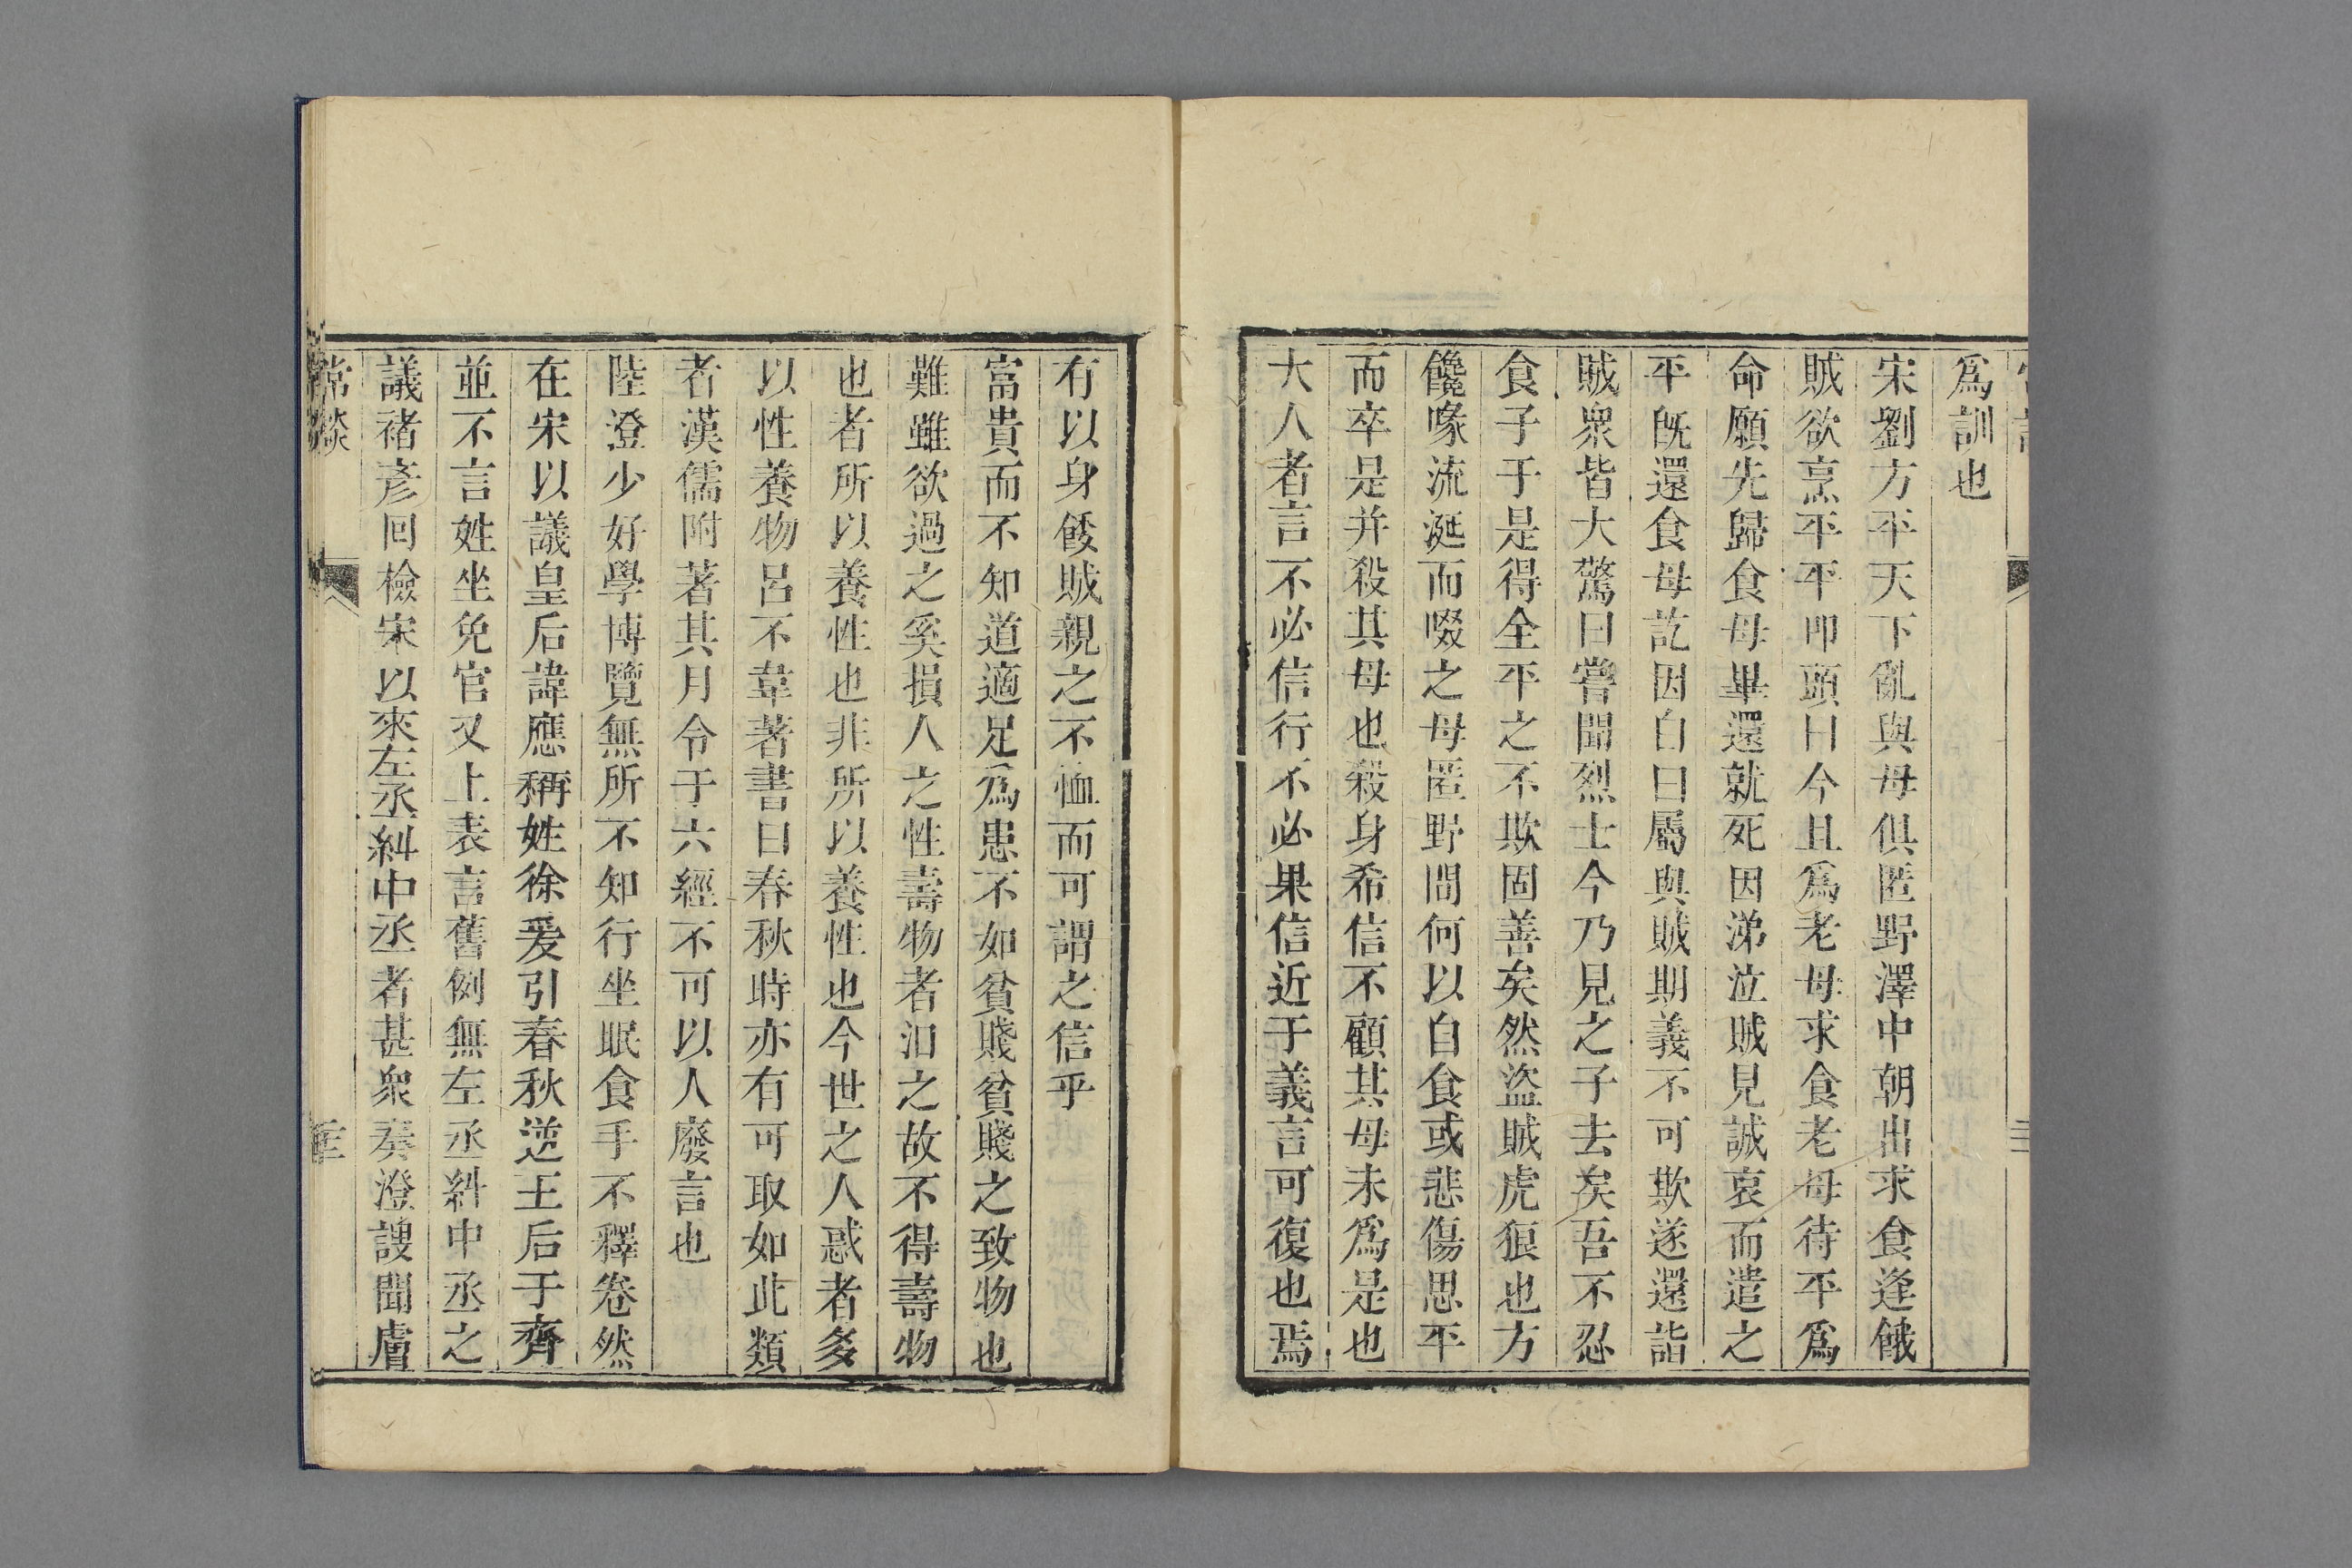 爲訓也
宋劉方平天下亂與母俱匿野澤中朝出求食逢餓
賊欲烹平平叩頭曰今旦爲老母求食老母待平爲
命願先歸食母畢還就死因涕泣賊見誠哀而遣之
平旣還食母訖因白曰屬與賊期義不可欺遂還詣
賊衆皆大驚曰嘗聞烈士今乃見之子去矣吾不忍
食子于是得全平之不欺固善矣然盜賊虎狼也方
饞喙流涎而啜之母匿野間何以自食或悲傷思平
而卒是并殺其母也殺身希信不顧其母未爲是也
大人者言不必信行不必果信近于義言可復也焉
有以身餧賊親之不恤而可謂之信乎
富貴而不知道適足爲患不如貧賤貧賤之致物也
難雖欲過之奚損人之性壽物者汩之故不得壽物
也者所以養性也非所以養性也今世之人惑者多
以性養物呂不韋著書曰春秋時亦有可取如此類
者漢儒附著其月令于六經不可以人廢言也
陸澄少好學博覽無所不知行坐眠食手不釋卷然
在宋以議皇后諱應稱姓徐爰引春秋逆王后于齊
並不言姓坐免官又上表言舊例無左丞糾中丞之
議褚彥回檢宋以來左丞糾中丞者甚衆奏澄謏聞膚
常談